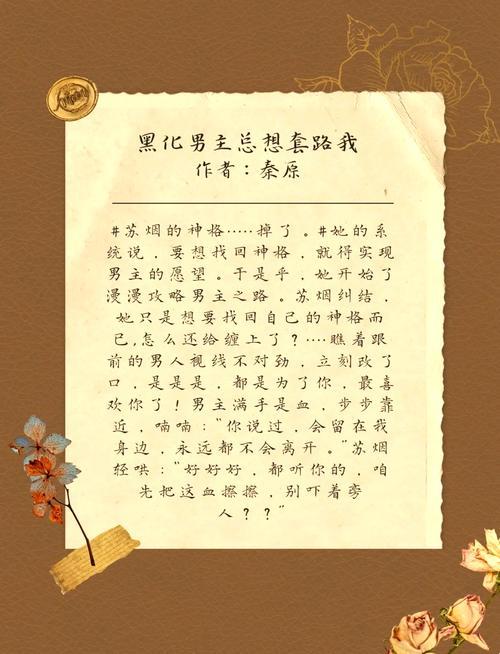 黑化男主总想套路我
作者：秦原
#苏烟的神格·····掉了。#她的系
统说，要想找回神格，就得实现
男主的愿望。于是乎，她开始了
漫漫攻略男主之路。苏烟纠结，
她只是想要找回自己的神格而
已,怎么还给缠上了？····瞧着跟
前的男人视线不对劲，立刻改了
口，是是是，都是为了你，最喜
欢你了！男主满手是血，步步靠
近，喃喃："你说过，会留在我
身边，永远都不会离开。"苏烟
轻哄："好好好，都听你的，咱
先把这血擦擦，别吓着旁
人？？"